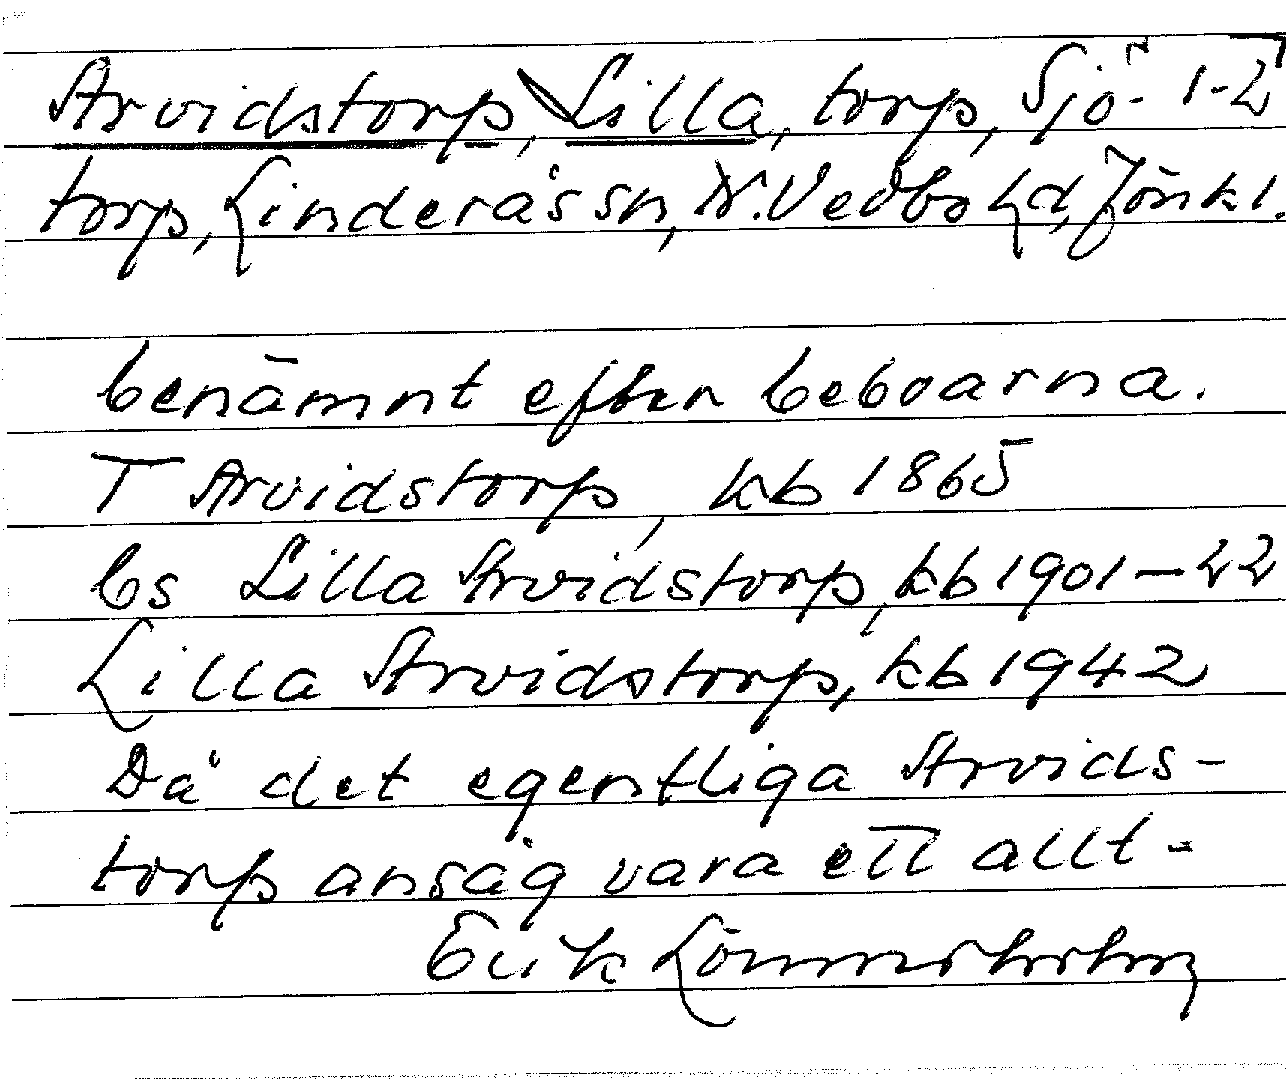 Arvidstorp, Lilla, torp, Sjö- 1-2
torp, Linderås sn, N. Vedbo hd, Jönk l.
benämnt efter beboarna.
T Arvidstorp, kb 1865
bs Lilla Arvidstorp, kb 1901-22
Lilla Arvidstorp, kb 1942
Då det egentliga Arvids-
torp ansåg vara ett allt-
Erik Lönnerholm